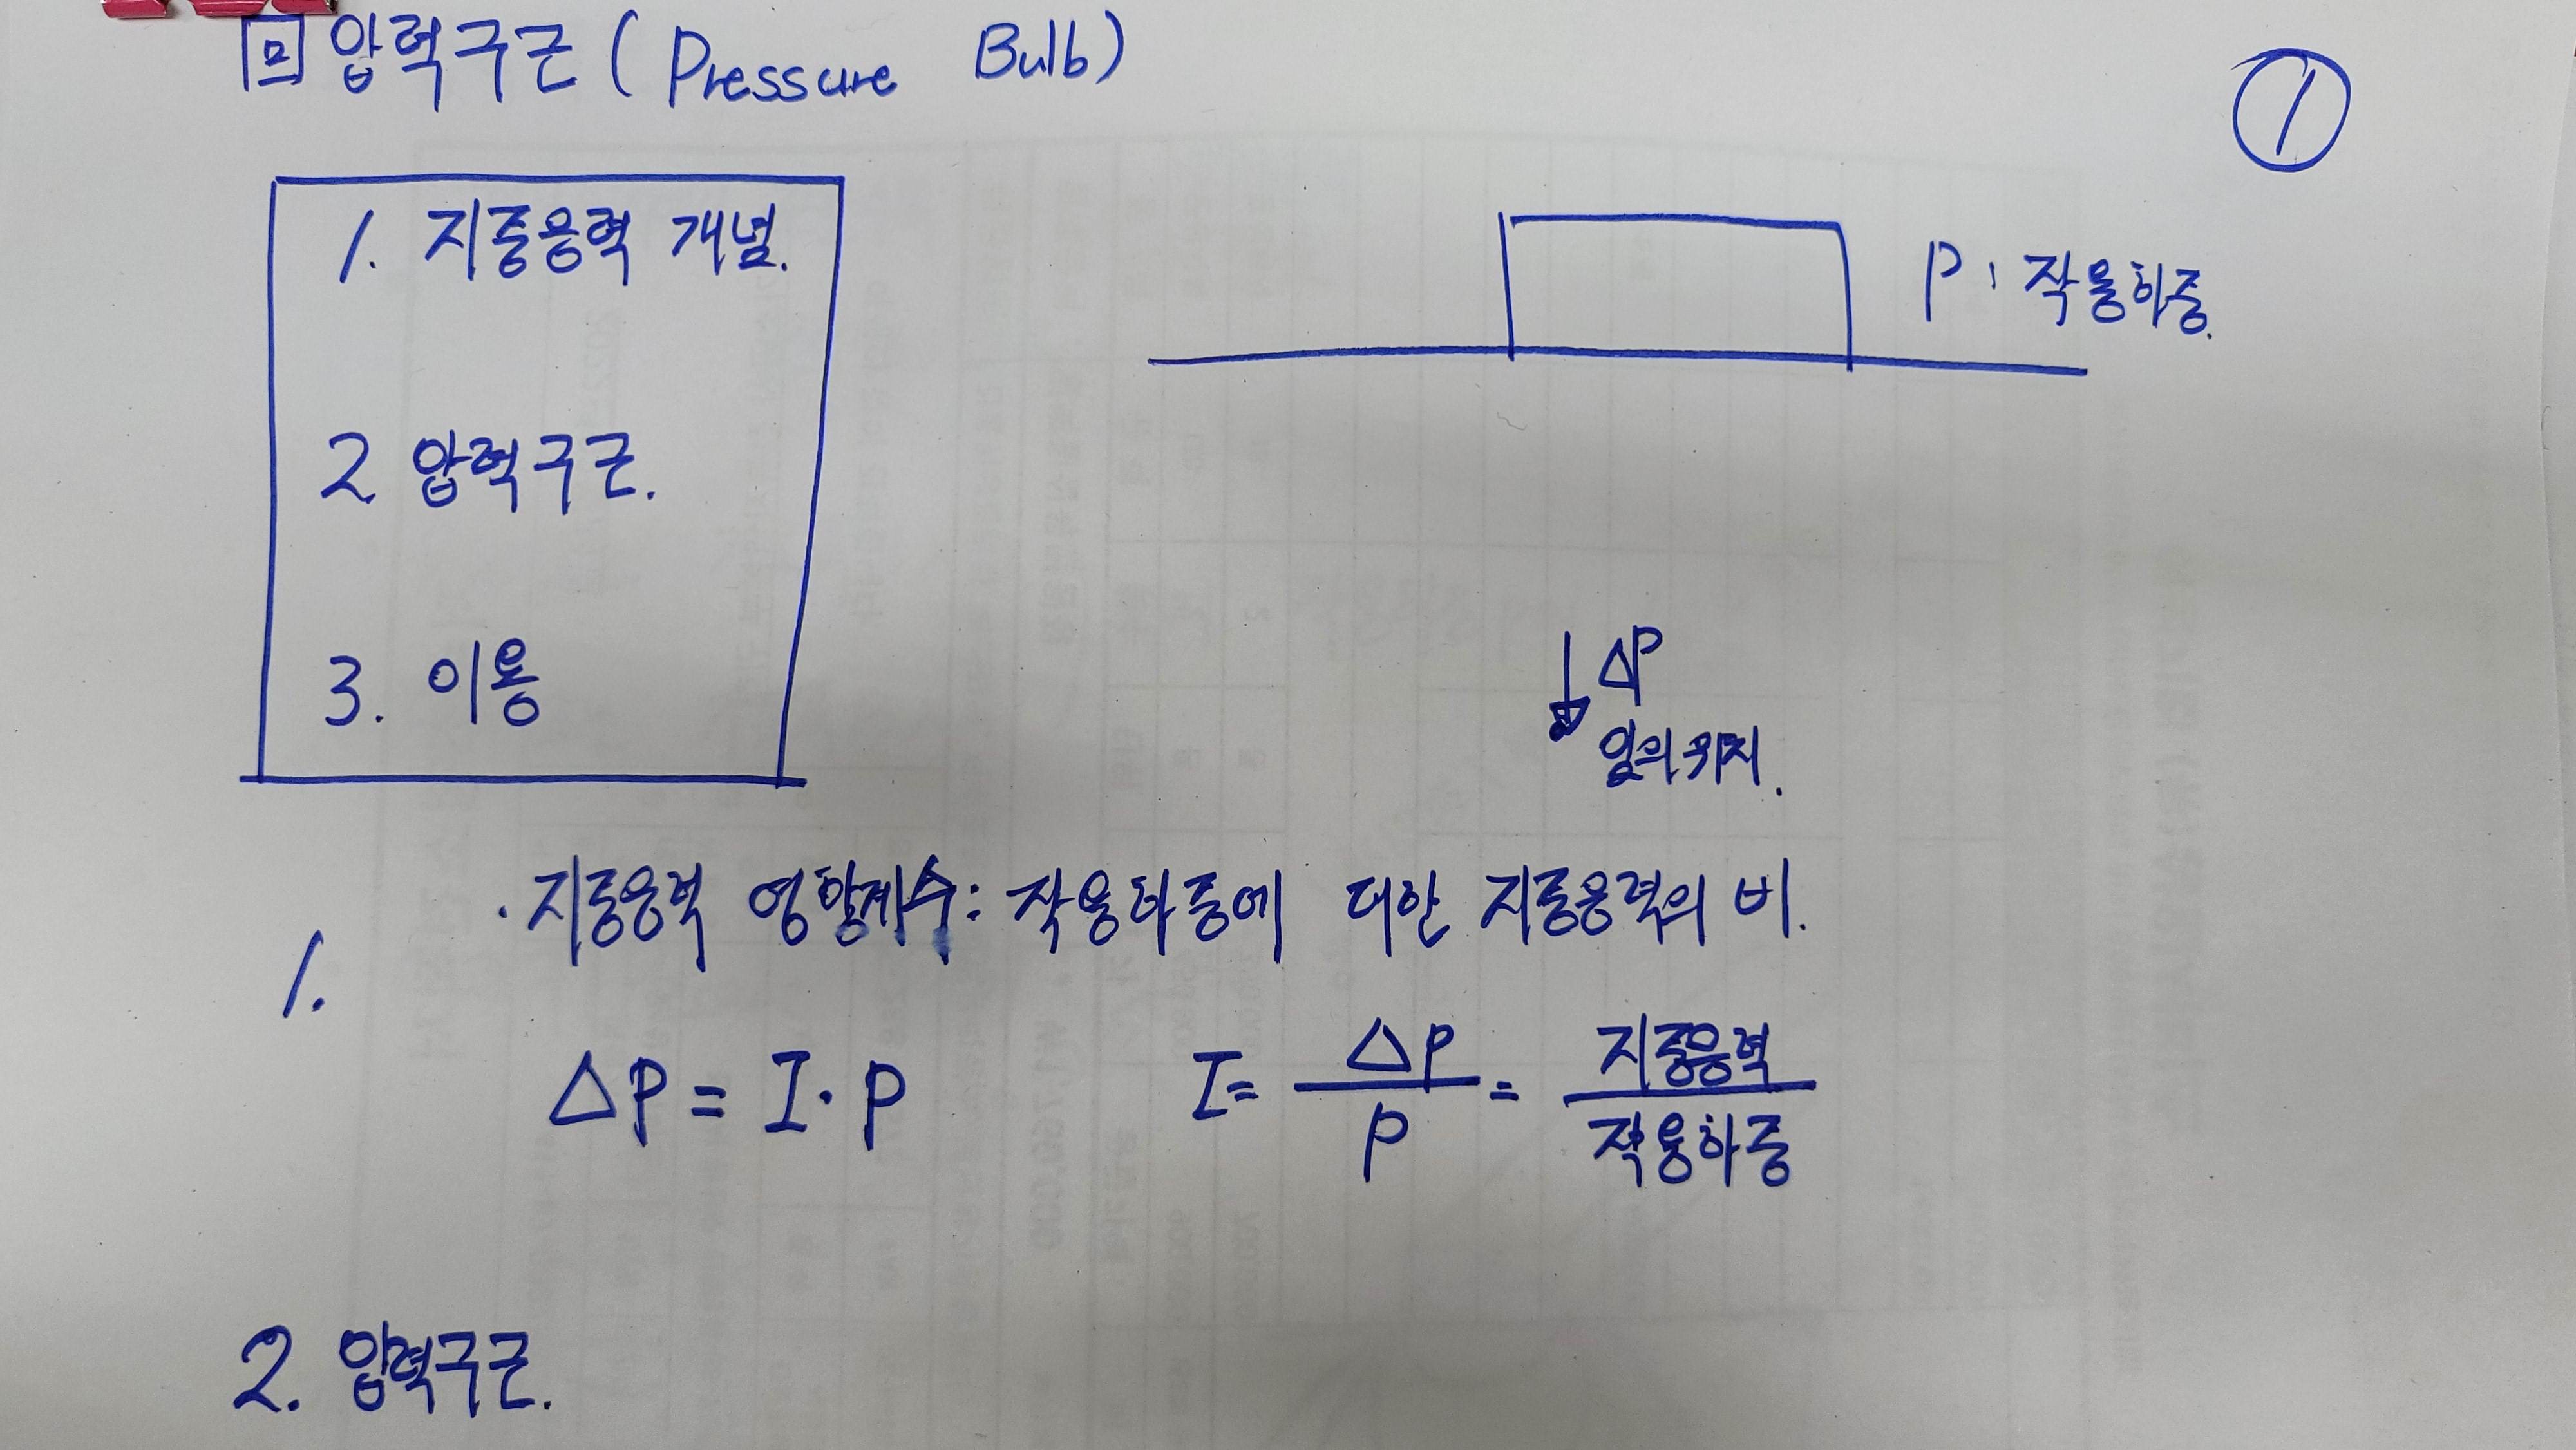 回 압력구근 ( Pressure Bulb)
①
1. 지중응력 개념.
2 압력구근.
3. 이용
P : 작용하중.
ΔP
임의위치.
· 지중응력 영향계수: 작용하중에 대한 지중응력의 비.
1.
ΔP = I · P
I = ΔP / P = 지중응력 / 작용하중
2. 압력구근.